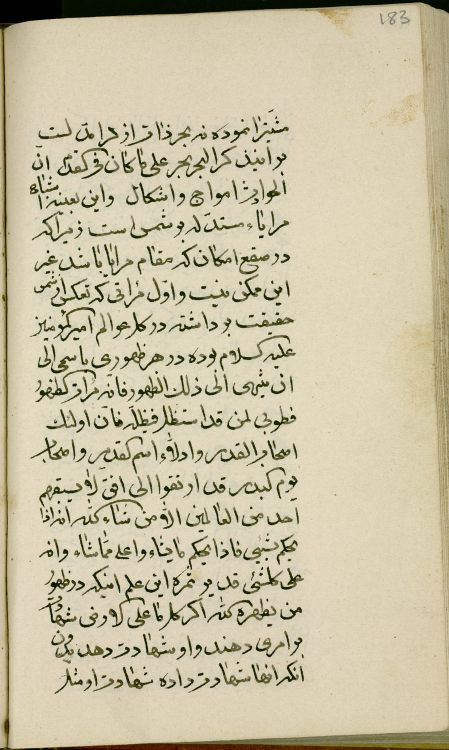 183
متنزا نموده نه بحر ذات از فرامت لست
بر اینیکه البحر بحر علی ما کان فی القدم ان
الحوادث امواج و اشکال و این بعینه اشاه
مرایاء مستدله بر شمس است زیرا که
در صقع امکان که مقام مرایا باشد غیر
این ممکن نیست و اول مراتی که تعکس از شمس
حقیقت بر داشته در کل عوالم امیر المؤمنین
علیه السلام بوده در هر ظهوری باسمی الی
ان ینتهی الی ذلک الظهور فانه مرات الظهور
فطوبی لمن قد استظل فی ظله فان اولئک
اصحاب القدس و ادلاء اسم القدیر و اصحاب
یوم البدر قد ارتقوا الی افق لا یسبقهم
احد من العالمین الا من شاء الله انه اذا
یحکم بشیئی فاذا یحکم ما یشاء و اعلی مما شاء و انه
علی کلشئی قدیر ثمره این علم اینکه در ظهور
من یظهره الله اکر کل ما علی الارض شهادت
بر امری دهند و او شهادت دهد بدون
انکه انها شهادت داده شهادت او مثل